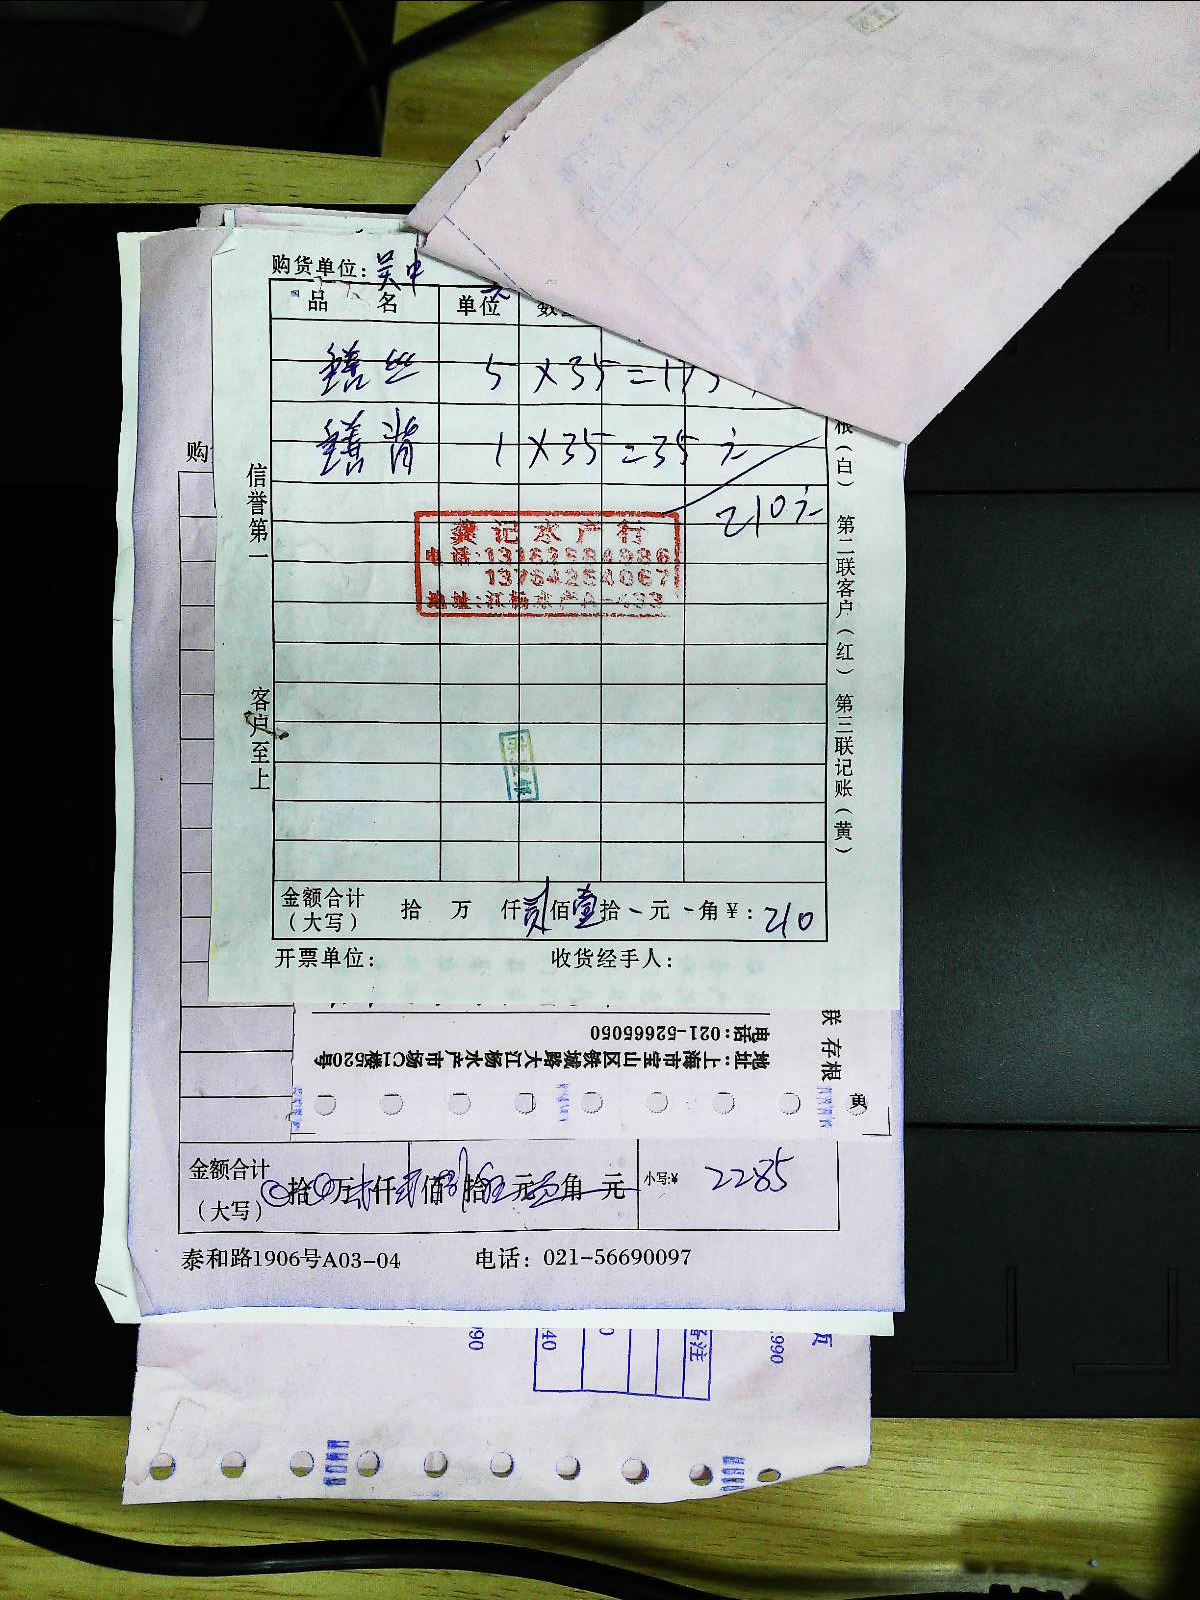 购货单位：吴中
品 名 单位
鳝丝 5 × 35 = 175
鳝背 1 × 35 = 35 元
210元
龚记水产行
电话:
地址:江杨水产A-133
信誉第一
客户至上
根（白） 第二联客户（红） 第三联记账（黄）
金额合计
（大写） 拾 万 仟 贰佰 壹拾 - 元 - 角 ¥: 210
开票单位： 收货经手人：
购
联 存根
黄
地址:上海市宝山区铁城路大江杨水产市场C1楼520号
电话:021-52665050
金额合计
（大写） 拾 万 仟 佰 拾 元 角 元 小写:¥ 2285
泰和路1906号A03-04 电话：021-56690097
备注